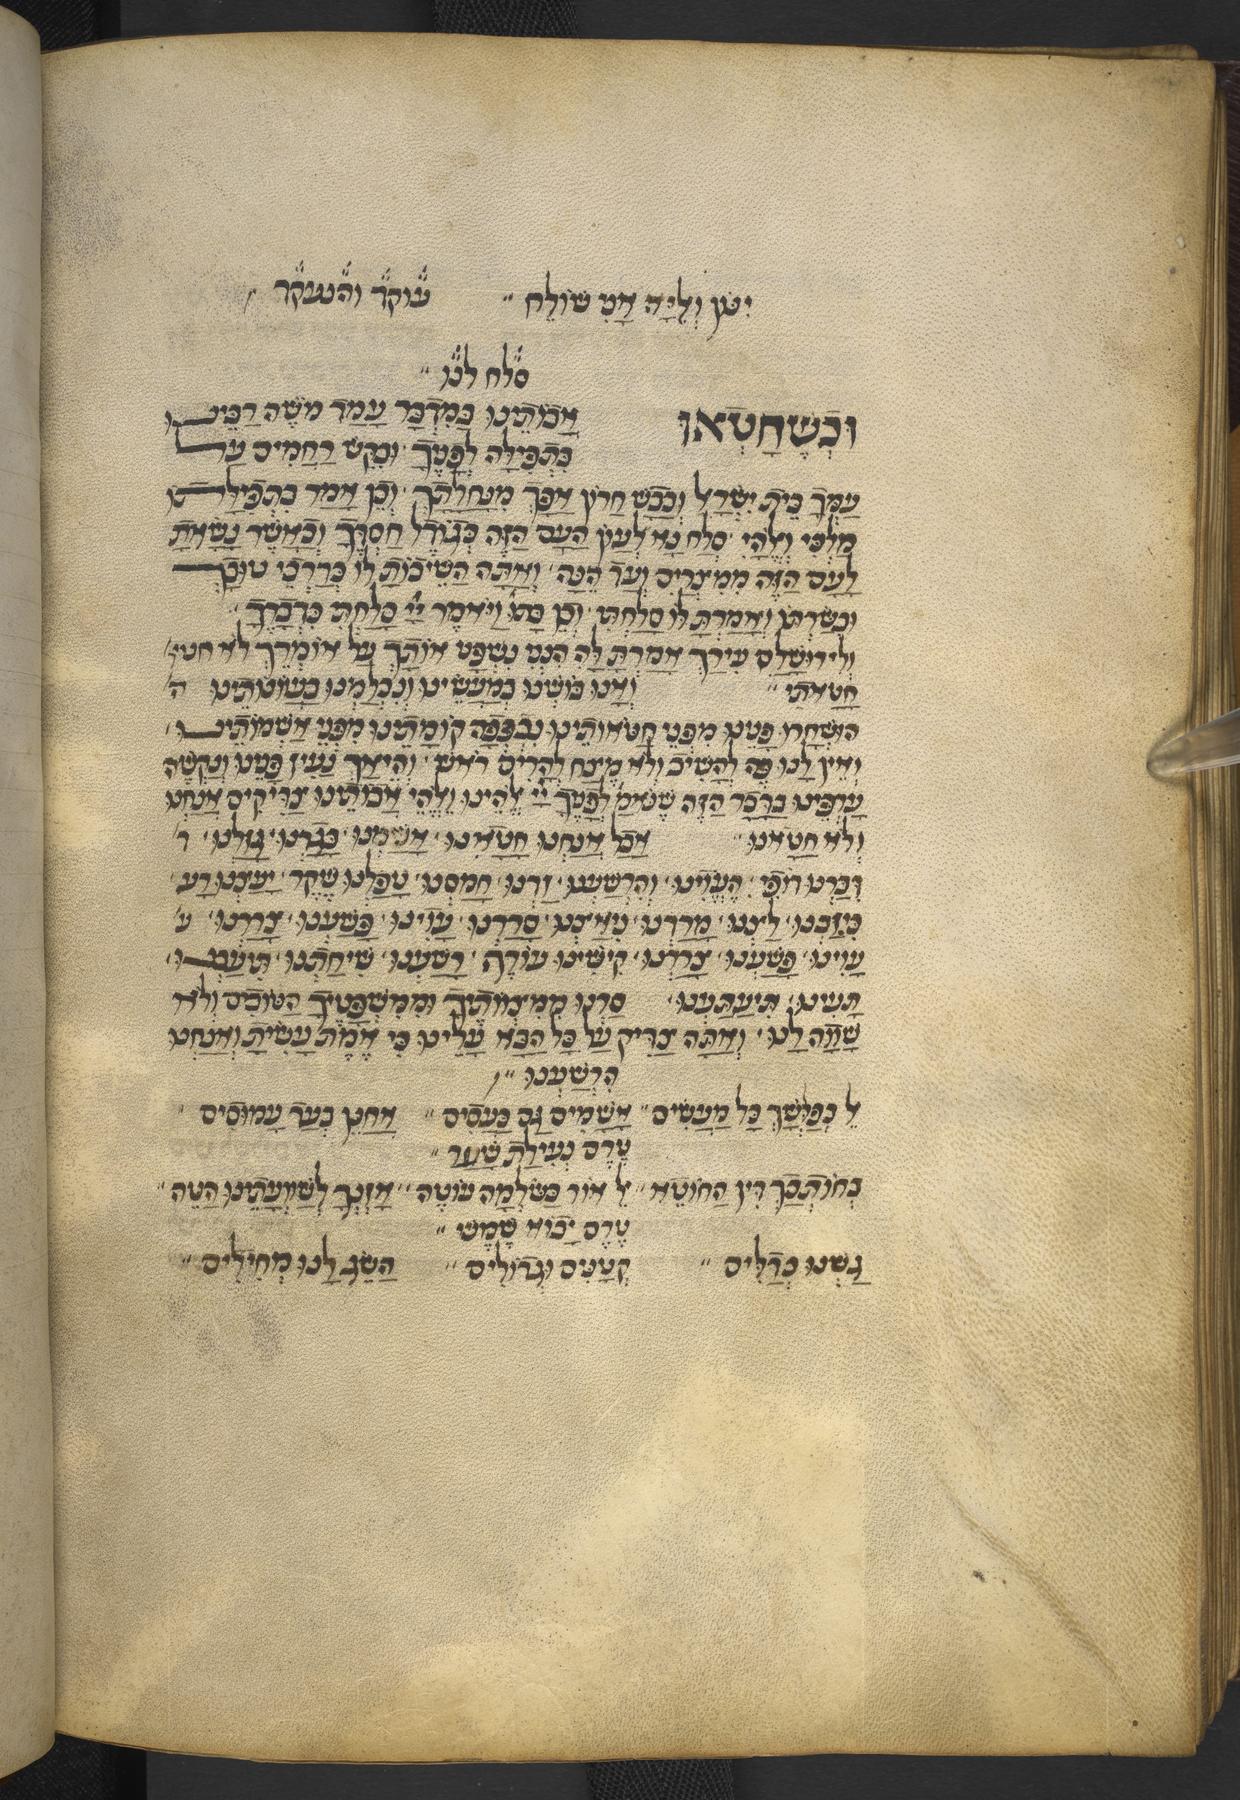 ישן וְלִבָּהּ אָמִ שׁוֹלֵחַ ״ עוקר והנעקר
סלח לנו ״
וּכְשֶׁחָטְאוּ אֲבוֹתֵינוּ בַּמִּדְבָּר עָמַד מֹשֶׁה רַבֵּינוּ
בִּתְפִילָּה לְפָנֶיךָ וּבִקֵּשׁ רַחֲמִים עַל
עַמְּךָ בֵּית יִשְׂרָאֵל וְכָבַשׁ חֲרוֹן אַפְּךָ מִנַּחֲלָתֶךָ וְכֵן אָמַר בִּתְפִילָּתוֹ
מַלְכִּי וֵאלֹהָי סְלַח נָא לַעֲוֹן הָעָם הַזֶּה כְּגוֹדֶל חַסְדֶּךָ וְכַאֲשֶׁר נָשָׂאתָ
לָעָם הַזֶּה מִמִּצְרַיִם וְעַד הֵנָּה וְאַתָּה הֲשִׁיבוֹתָ לוֹ כְּדַרְכֵי טוּבָךְ
וּבִשַּׂרְתּוֹ וְאָמַרְתָּ לוֹ סָלַחְתִּי וְכֵן כָּתוּ׳ וַיֹּאמֶר יְיָ סָלַחְתִּי כִּדְבָרֶךָ
וְלִירוּשָׁלַם עִירַךְ אָמַרְתָּ לָהּ הִנְנִי נִשְׁפָּט אוֹתָךְ עַל אוֹמְרֵךְ לֹא חט
חָטָאתִי ״ וְאָנוּ בּוֹשְׁנוּ בְּמַעֲשֵׂינוּ וְנִכְלַמְנוּ בַּעֲוֹנוֹתֵינוּ ה
הוּשְׁחֲרוּ פָּנֵינוּ מִפְּנֵי חַטֹּאותֵינוּ נִכְפְּפָה קוֹמָתֵינוּ מִפְּנֵי אַשְׁמוֹתֵינוּ
וְאֵין לָנוּ פֶּה לְהָשִׁיב וְלֹא מֵצַח לְהָרִים רֹאשׁ וְהֵיאַךְ נָעִיז פָּנֵינוּ וְנַקְשֶׁה
עָרְפֵּינוּ בַּדָּבָר הַזֶּה שֶׁנֹּאמַ׳ לְפָנֶיךָ יְיָ אֱלֹהֵינוּ וֵאלֹהֵי אֲבוֹתֵינוּ צַדִּיקִים אֲנַחְנוּ
וְלֹא חָטָאנוּ ״ אֲבָל אֲנַחְנוּ חָטָאינוּ אָשַׁמְנוּ בָּגַדְנוּ גָּזַלְנוּ ד
דִּבַּרְנוּ דוֹפִי הֶעֱוִינוּ וְהִרְשַׁעְנוּ זַדְנוּ חָמַסְנוּ טָפַלְנוּ שֶׁקֶר יָעַצְנוּ רָע
כִּזַּבְנוּ לַצְנוּ מָרַדְנוּ נִאַצְנוּ סָרַרְנוּ עָוִינוּ פָּשַׁעְנוּ צָרַרְנוּ ע
עָוִינוּ פָּשַׁעְנוּ צָרַרְנוּ קִישִּׁינוּ עוֹרֶף רָשַׁעְנוּ שִׁיחַתְנוּ תּוֹעַבְנוּ
תָּעִינוּ תִּיעְתַּעְנוּ סַרְנוּ מִמִּצְוֹתֶיךָ וּמִמִּשְׁפָּטֶיךָ הַטּוֹבִים וְלֹא
שָׁוָה לָנוּ וְאַתָּה צַדִּיק עַל כָּל הַבָּא עָלֵינוּ כִּי אֱמֶת עָשִׂיתָ וַאֲנַחְנוּ
הִרְשַׁעְנוּ ״
אֵל בְּפַלְּשָׁךְ כָּל מַעֲשִׂים ״ אֲשֵׁמִים גַּם כַּעֲסִים ״ אֲחָנֵן בְּעַד עֲמוּסִים ״
טֶרֶם נְעִילַת שַׁעַר ״
בְּחוֹתְכָךְ דִּין הַחוֹטֵא ״ אֵל אוֹר כַּשַּׂלְמָה עוֹטֶה ״ אָזְנְךָ לְשַׁוְועָתֵינוּ הַטֵּה ״
טֶרֶם יָבוֹא שֶׁמֶשׁ ״
גַּשְׁנוּ כְּדַלִּים ״ קְטַנִּים וּגְדוֹלִים ״ הַשֵּׂג לָנוּ מְחִילִים ״